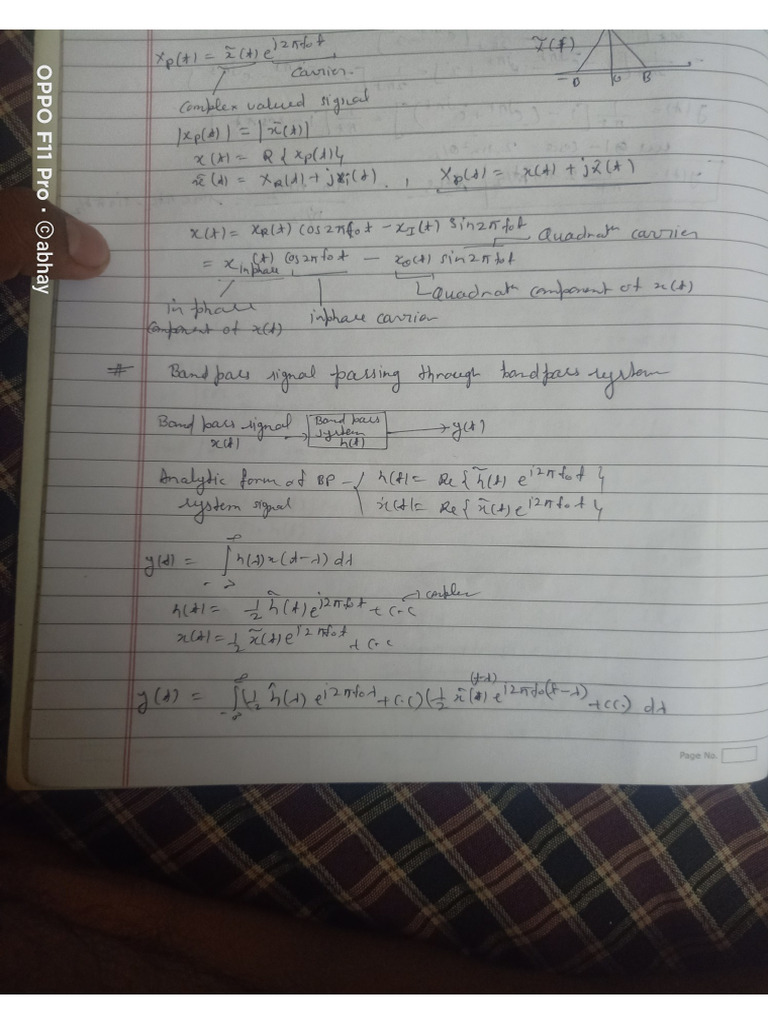 xp(t) = x̃(t) e^{j2πf₀t}
carrier.
X̃(f)
-B 0 B
complex valued signal
|xp(t)| = |x̃(t)|
x(t) = R{xp(t)}
x̃(t) = xR(t) + jxi(t) , xp(t) = x(t) + jx̂(t)
x(t) = xR(t) cos2πf₀t - xI(t) sin2πf₀t
Quadrath carrier
= x inphase (t) cos2πf₀t - xQ(t) sin2πf₀t
Quadrath component of x(t)
in phase component of x(t)
inphase carrier
# Band pass signal passing through bandpass system
Band pass signal x(t) → Band pass system h(t) → y(t)
Analytic form of BP system signal
h(t) = Re{h̃(t) e^{j2πf₀t}}
x(t) = Re{x̃(t) e^{j2πf₀t}}
y(t) = ∫ h(λ) x(t-λ) dλ
h(t) = 1/2 h̃(t) e^{j2πf₀t} + C.C → complex
x(t) = 1/2 x̃(t) e^{j2πf₀t} + C.C
y(t) = ∫_{-∞}^{∞} (1/2 h̃(λ) e^{j2πf₀λ} + C.C) (1/2 x̃(t-λ) e^{j2πf₀(t-λ)} + CC.) dλ
Page No.
OPPO F11 Pro · ©abhay